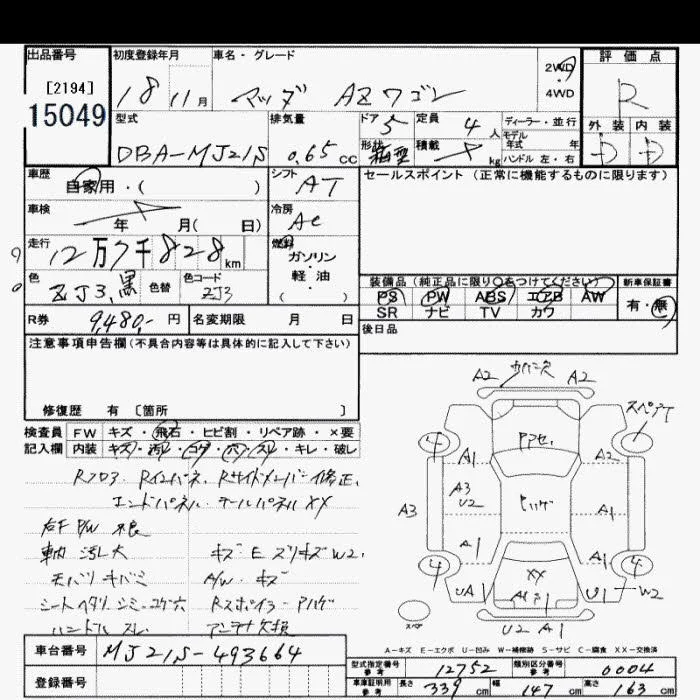 出品番号 初度登録年月 車名・グレード 2WD 4WD 評価点
[2194]
15049
18 11月 マツダ AZワゴン R
型式 排気量 ドア 5 定員 4人 ディーラー・並行 外装 内装
モデル年式 年
DBA-MJ21S 0.65 cc 形状 箱型 積載 kg ハンドル 左・右 D D
車歴 自家用・( ) シフト AT セールスポイント(正常に機能するものに限ります)
車検 年 月( 日) 冷房 AC
走行 12万7千828km 燃料 ガソリン・軽油・( )
色 ZJ3,黒 色替 色コード ZJ3
装備品(純正品に限り○をつけてください) 新車保証書
PS PW ABS エアB AW 有・無
SR ナビ TV カワ
R券 9,480.- 円 名変期限 月 日
後日品
注意事項申告欄(不具合内容等は具体的に記入して下さい)
修復歴 有 [箇所 ]
検査員 FW キズ・飛石・ヒビ割・リペア跡・×要
記入欄 内装 キズ・汚れ・コゲ・穴・スレ・キレ・破レ
Rフロア Rインパネ Rサイドメンバー修正,
エンドパネル・テールパネルXX
右F P/W 不良
車内 汚レ大 キズ E スリキズ W2,
天バリ キバミ A/W・キズ
シートヘタリ シミ コゲ穴 Rスポイラー・ハガレ
ハンドル スレ アンテナ欠損
A2 カバー欠 A2
スペア
4 ププセ. 4
A1 A2
A3 A3 U2 ヒハゲ A1
A1 A1
4 XX 4
UA1 U1 W2
スペア
U2 A1
A-キズ E-エクボ U-凹み W-補修跡 S-サビ C-腐食 XX-交換済
車台番号 MJ21S-493664
登録番号
型式指定番号 参考 12752 類別区分番号 参考 0004
車庫証明用 参考 長さ 339 cm 幅 147 cm 高さ 163 cm